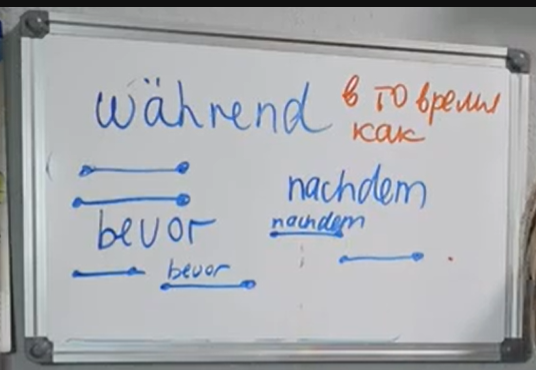 während в то время
как
nachdem
nachdem
bevor
bevor